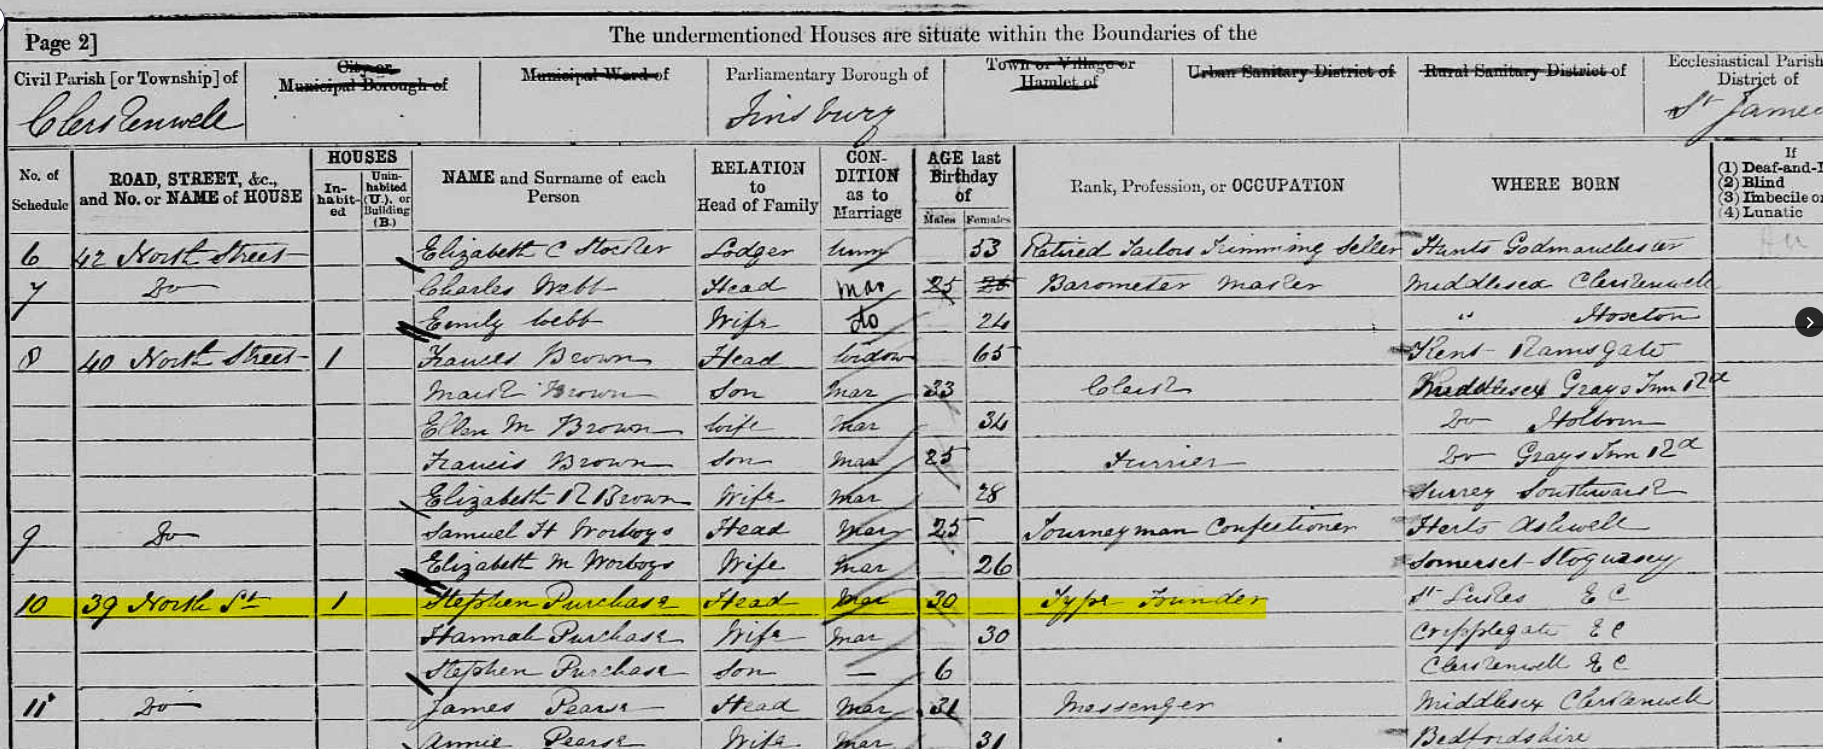 Page 2] The undermentioned Houses are situate within the Boundaries of the
Civil Parish [or Township] of City or Municipal Borough of Municipal Ward of Parliamentary Borough of Town or Village or Hamlet of Urban Sanitary District of Rural Sanitary District of Ecclesiastical Parish District of
Clerkenwell Finsbury St James
No. of Schedule ROAD, STREET, &c., and No. or NAME of HOUSE HOUSES In-habit-ed Unin-habited (U.), or Building (B.) NAME and Surname of each Person RELATION to Head of Family CON-DITION as to Marriage AGE last Birthday of Males Females Rank, Profession, or OCCUPATION WHERE BORN If (1) Deaf-and-D (2) Blind (3) Imbecile or (4) Lunatic
6 42 North Street Elizabeth C Stocker Lodger unm 53 Retired Tailors Trimming Seller Hunts Godmanchester
7 Do Charles Webb Head mar 25 25 Barometer Maker Middlesex Clerkenwell
Emily Webb Wife do 24 " Hoxton
8 40 North Street 1 Frances Brown Head Widow 65 Kent Ramsgate
Mark Brown Son Mar 33 Clerk Middlesex Grays Inn Rd
Ellen M Brown Wife Mar 34 Do Holborn
Francis Brown Son Mar 25 Furrier Do Grays Inn Rd
Elizabeth R Brown Wife Mar 28 Surrey Southwark
9 Do Samuel H Worboys Head Mar 25 Journeyman Confectioner Herts Ashwell
Elizabeth M Worboys Wife Mar 26 Somerset Stogursey
10 39 North St 1 Stephen Purchase Head Mar 30 Type Founder St Lukes E C
Hannah Purchase Wife Mar 30 Cripplegate E C
Stephen Purchase Son — 6 Clerkenwell E C
11 Do James Pearse Head Mar 31 Messenger Middlesex Clerkenwell
Annie Pearse Wife Mar 31 Bedfordshire